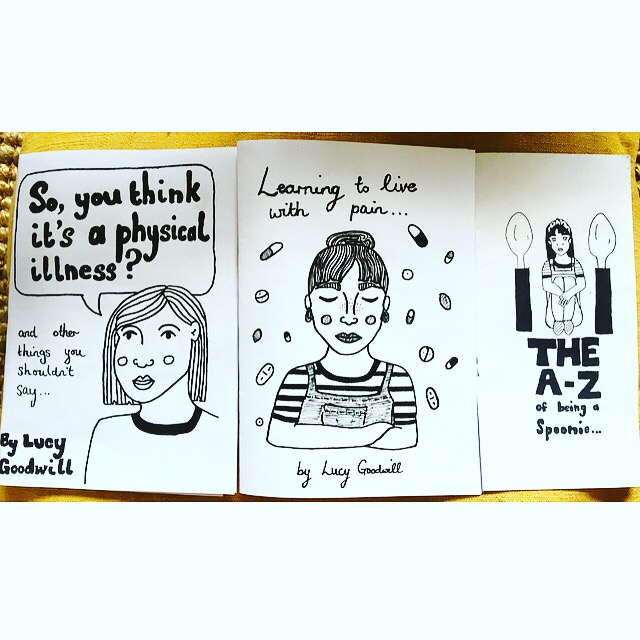 So, you think
it's a physical
illness?
and other
things you
shouldn't
say...
By Lucy
Goodwill
Learning to live
with pain...
by Lucy Goodwill
THE
A-Z
of being a
Spoonie...